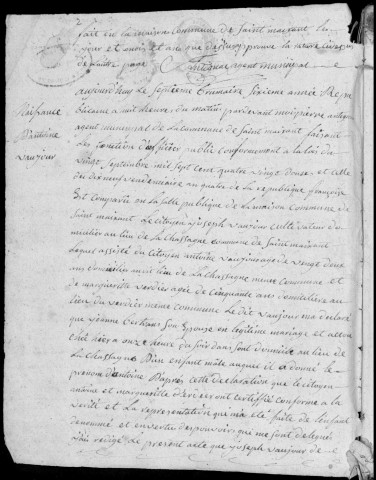 2
fait en la maison commune de Saint maixant les
jour et mois et an que dessus
agent municipal
aujourdhuy le septieme brumaire sixieme année Repu
blicaine a huit heures du matin pardevant moy pierre
agent municipal de la commune de Saint maixant faisant
les fonction d'officier public conformement a la loi du
vingt septembre mil sept cent quatre vingt douse et celle
du dix neuf vendemiaire an quatre de la republique françoise
Est comparu en la salle publique de la maison commune de
Saint maixant le citoyen joseph vaujour cultivateur do
micilier au lieu de La Chassagne commune de Saint maixant
Lequel assisté du citoyen antoine vaujour age de vingt deux
ans domicilier audit lieu de La Chassagne meme commune et
de marguerite verdier agée de cinquante ans domicilier au
lieu du verdier même commune Le dit vaujour ma declaré
que jeanne bertrand son Epouse en legitime mariage et accou
chée hier a onze heures du soir dans son domicile au lieu de
La Chassagne D'un enfant mâle auquel il a donné le
prenom d'antoine D'apres cette declaration que le citoyen
antoine et marguerite d'everdier ont certifié conforme a la
verité et la representation qui ma eté faite de l'enfant
denommé et en vertu des pouvoirs qui me sont delegués
j'ai redigé le present acte que joseph vaujour
Naissance
D'antoine
vaujour